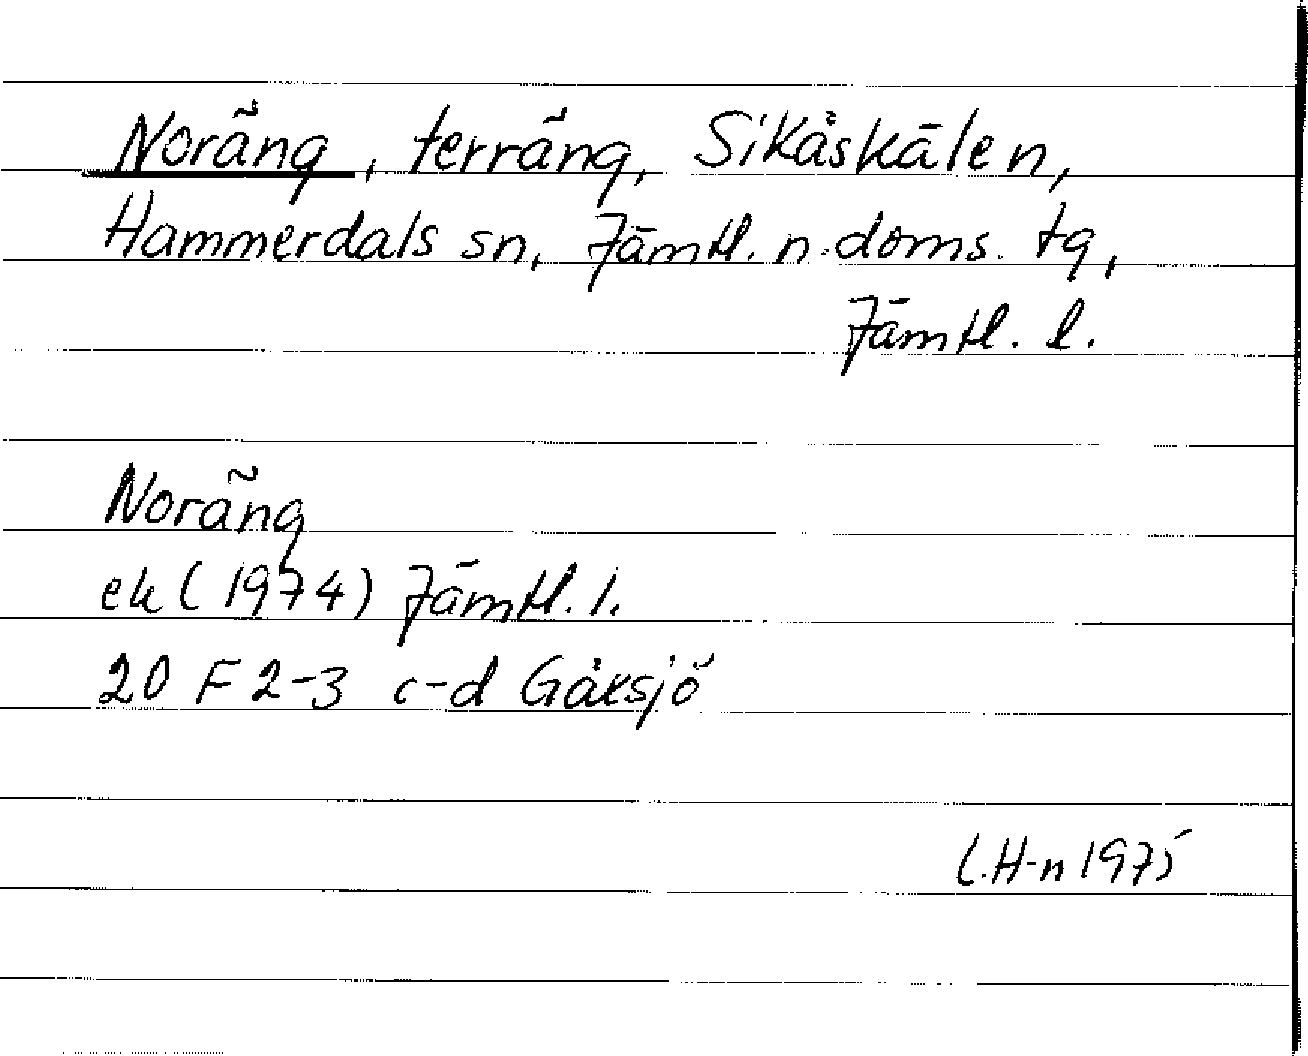 Noräng, terräng, Sikåskälen,
Hammerdals sn, Jämtl. n. doms. tg,
Jämtl. l.
Noräng
ek (1974) Jämtl. l.
20 F 2-3 c-d Gåxsjö
L.H-n 1975